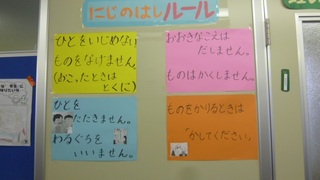 にじのはしルール
ひとをいじめない
ものをなげません。
(おこったときは
とくに)
おおきなこえは
だしません。
ものはかくしません。
ひとを
たたきません。
わるぐちを
いいません。
ものをかりるときは
"かしてください。